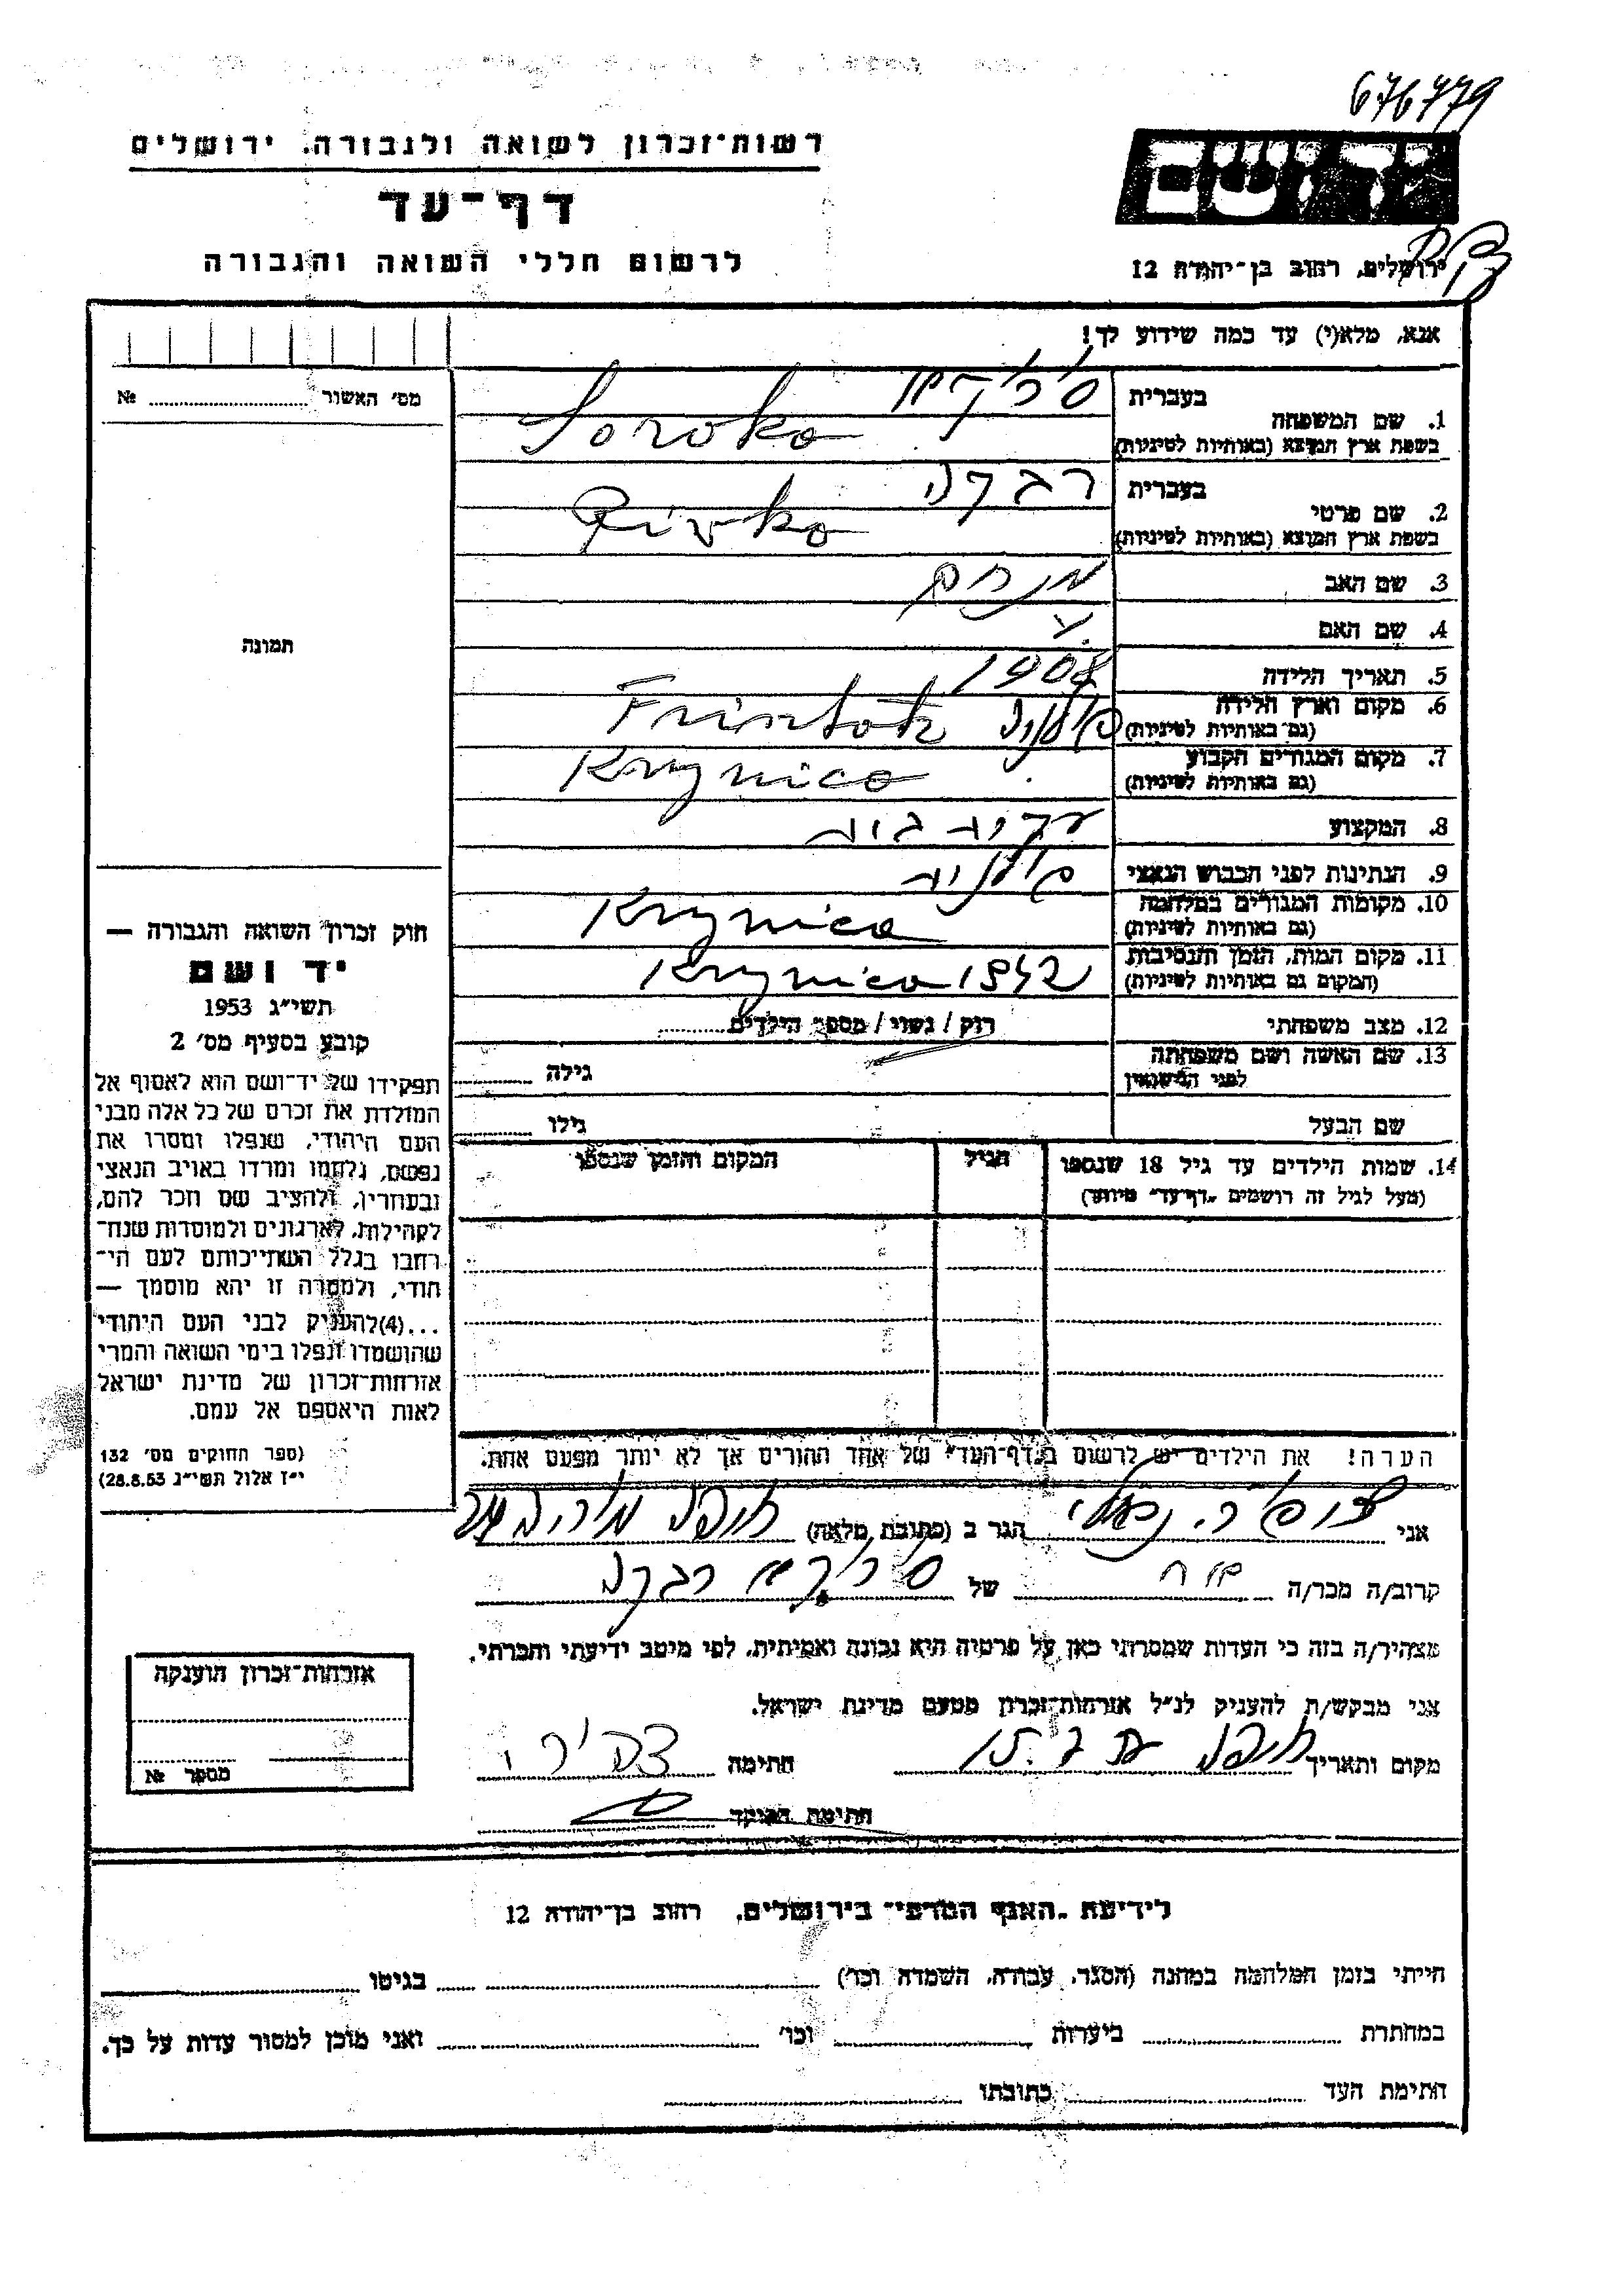 676779
רשות־זכרון לשואה ולגבורה, ירושלים
דף־עד
לרשום חללי השואה והגבורה
יד ושם
ירושלים, רחוב בן־יהודה 12
אנא, מלא(י) עד כמה שידוע לך!
מס׳ האשור № 
1. שם המשפחה
בעברית
בשפת ארץ המוצא (באותיות לטיניות) Soroka
2. שם פרטי
בעברית רבקה
בשפת ארץ המוצא (באותיות לטיניות) Rivka
3. שם האב מנחם
4. שם האם
5. תאריך הלידה 1908
6. מקום וארץ הלידה
(גם באותיות לטיניות) פולניה
7. מקום המגורים הקבוע
(גם באותיות לטיניות) Krynica
8. המקצוע עקרת בית
9. הנתינות לפני הכבוש הנאצי פולנית
10. מקומות המגורים במלחמה
(גם באותיות לטיניות) Krynica
11. מקום המות, הזמן והנסיבות
(המקום גם באותיות לטיניות) Krynica 1942
12. מצב משפחתי רוק / נשוי / מספר הילדים
13. שם האשה ושם משפחתה
לפני הנישואין גילה
שם הבעל גילו
14. שמות הילדים עד גיל 18 שנספו
(מעל לגיל זה רושמים "דף־עד" מיוחד)
הגיל
המקום והזמן שנספו
תמונה
חוק זכרון השואה והגבורה —
יד ושם
תשי״ג 1953
קובע בסעיף מס׳ 2
תפקידו של יד־ושם הוא לאסוף אל
המולדת את זכרם של כל אלה מבני
העם היהודי, שנפלו ומסרו את
נפשם, נלחמו ומרדו באויב הנאצי
ובעוזריו, ולהציב שם וזכר להם,
לקהילות, לארגונים ולמוסדות שנח־
רבו בגלל השתייכותם לעם הי־
הודי, ולמטרה זו יהא מוסמך —
...(4)להעניק לבני העם היהודי
שהושמדו ונפלו בימי השואה והמרי
אזרחות־זכרון של מדינת ישראל
לאות היאספם אל עמם.
(ספר החוקים מס׳ 132
י״ז אלול תשי״ג 28.8.53)
הערה! את הילדים יש לרשום ב"דף־העד" של אחד ההורים אך לא יותר מפעם אחת.
אני הגר ב (כתובת מלאה) חיפה
קרוב/ה מכר/ה של רבקה
מצהיר/ה בזה כי העדות שמסרתי כאן על פרטיה היא נכונה ואמיתית, לפי מיטב ידיעתי והכרתי.
אני מבקש/ת להעניק לנ״ל אזרחות־זכרון מטעם מדינת ישראל.
מקום ותאריך חיפה חתימה
חתימת הפוקד
אזרחות־זכרון הוענקה
מספר №
לידיעת "האגף המדעי" בירושלים, רחוב בן־יהודה 12
הייתי בזמן המלחמה במחנה (הסגר, עבודה, השמדה וכו׳) בגיטו
במחתרת ביערות וכו׳ ואני מוכן למסור עדות על כך.
חתימת העד כתובתו